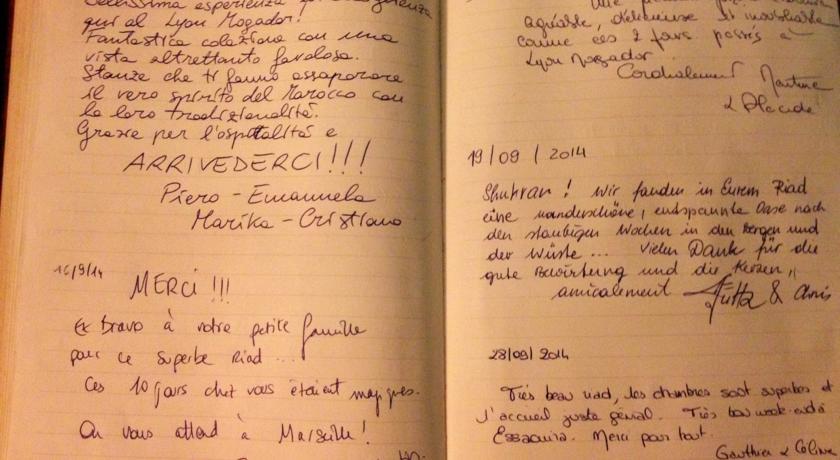 Bellissima esperienza
qui al Lyon Mogador!
Fantastica colazione con una
vista altrettanto favolosa.
Stanze che ti fanno assaporare
il vero spirito del Marocco con
la loro tradizionalità.
Grazie per l'ospitalità e
ARRIVEDERCI!!!
Piero - Emanuela
Marika - Cristiano
16/9/14
MERCI !!!
Et bravo à votre petite famille
pour ce superbe Riad ...
Ces 10 jours chez vous étaient magiques.
On vous attend à Marseille !
agréable, délicieuse et inoubliable
comme ces 2 fois passés à
Lyon Mogador.
Cordialement Martine
& Placide
19/09/2014
Shukran ! Wir fanden in Eurem Riad
eine wunderschöne, entspannte Oase nach
den staubigen Wochen in den Bergen und
der Wüste ... Vielen Dank für die
gute Bewirtung und die Kerzen,,
amicalement Jutta & Chris
28/09/2014
Très beau riad, les chambres sont superbes et
l'accueil juste génial. Très bon week-end à
Essaouira. Merci pour tout.
Gauthier &